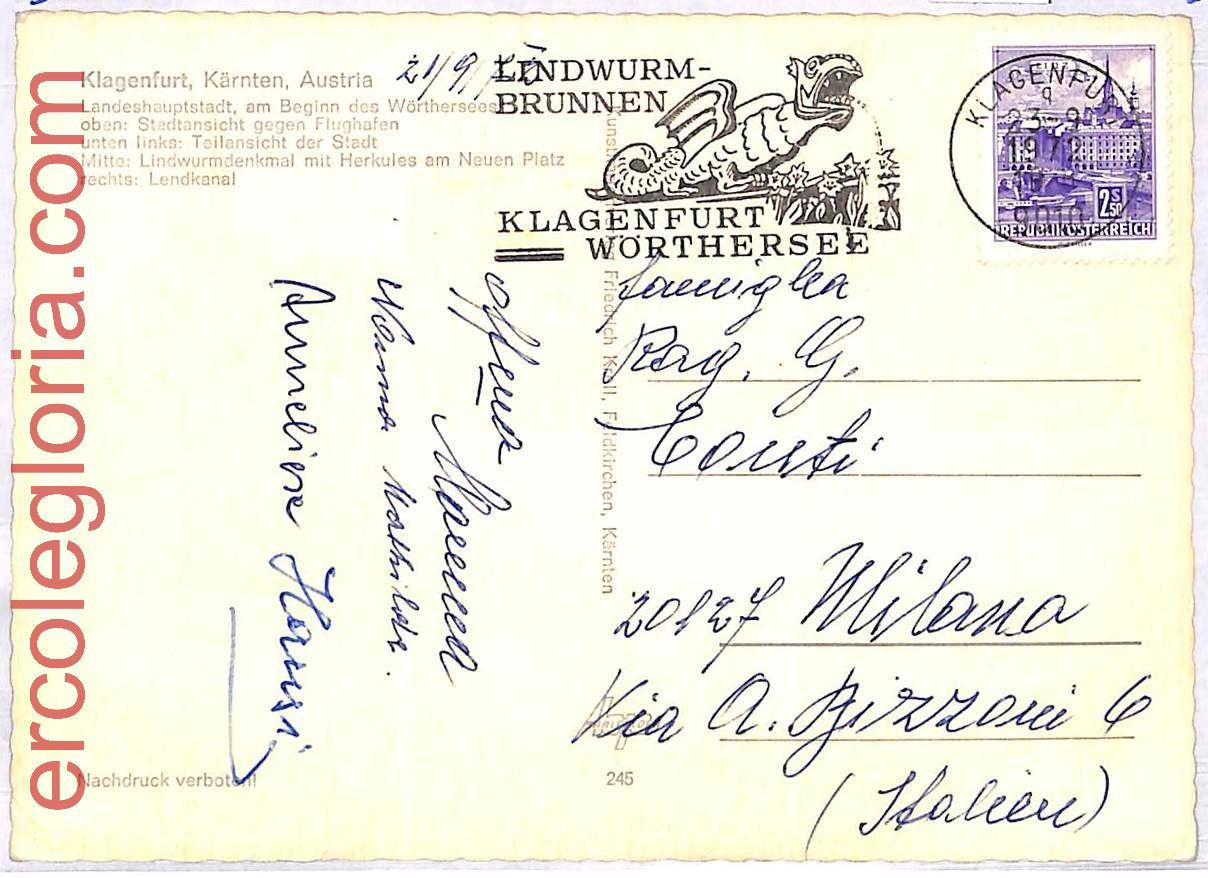 Klagenfurt, Kärnten, Austria
Landeshauptstadt, am Beginn des Wörthersees
oben: Stadtansicht gegen Flughafen
unten links: Teilansicht der Stadt
Mitte: Lindwurmdenkmal mit Herkules am Neuen Platz
rechts: Lendkanal
21/9/72
LINDWURM-
BRUNNEN
KLAGENFURT
WÖRTHERSEE
KLAGENFURT
23.-9.
1972
9010
2S50
REPUBLIK ÖSTERREICH
Friedrich Kroll, Feldkirchen, Kärnten
Mamma
Nonna Mathilde.
Anneliese Hansi
Famiglia
Rag. G.
Conti
20127 Milano
Via A. Bizzoni 6
(Italien)
Nachdruck verboten!
245
ercolegloria.com